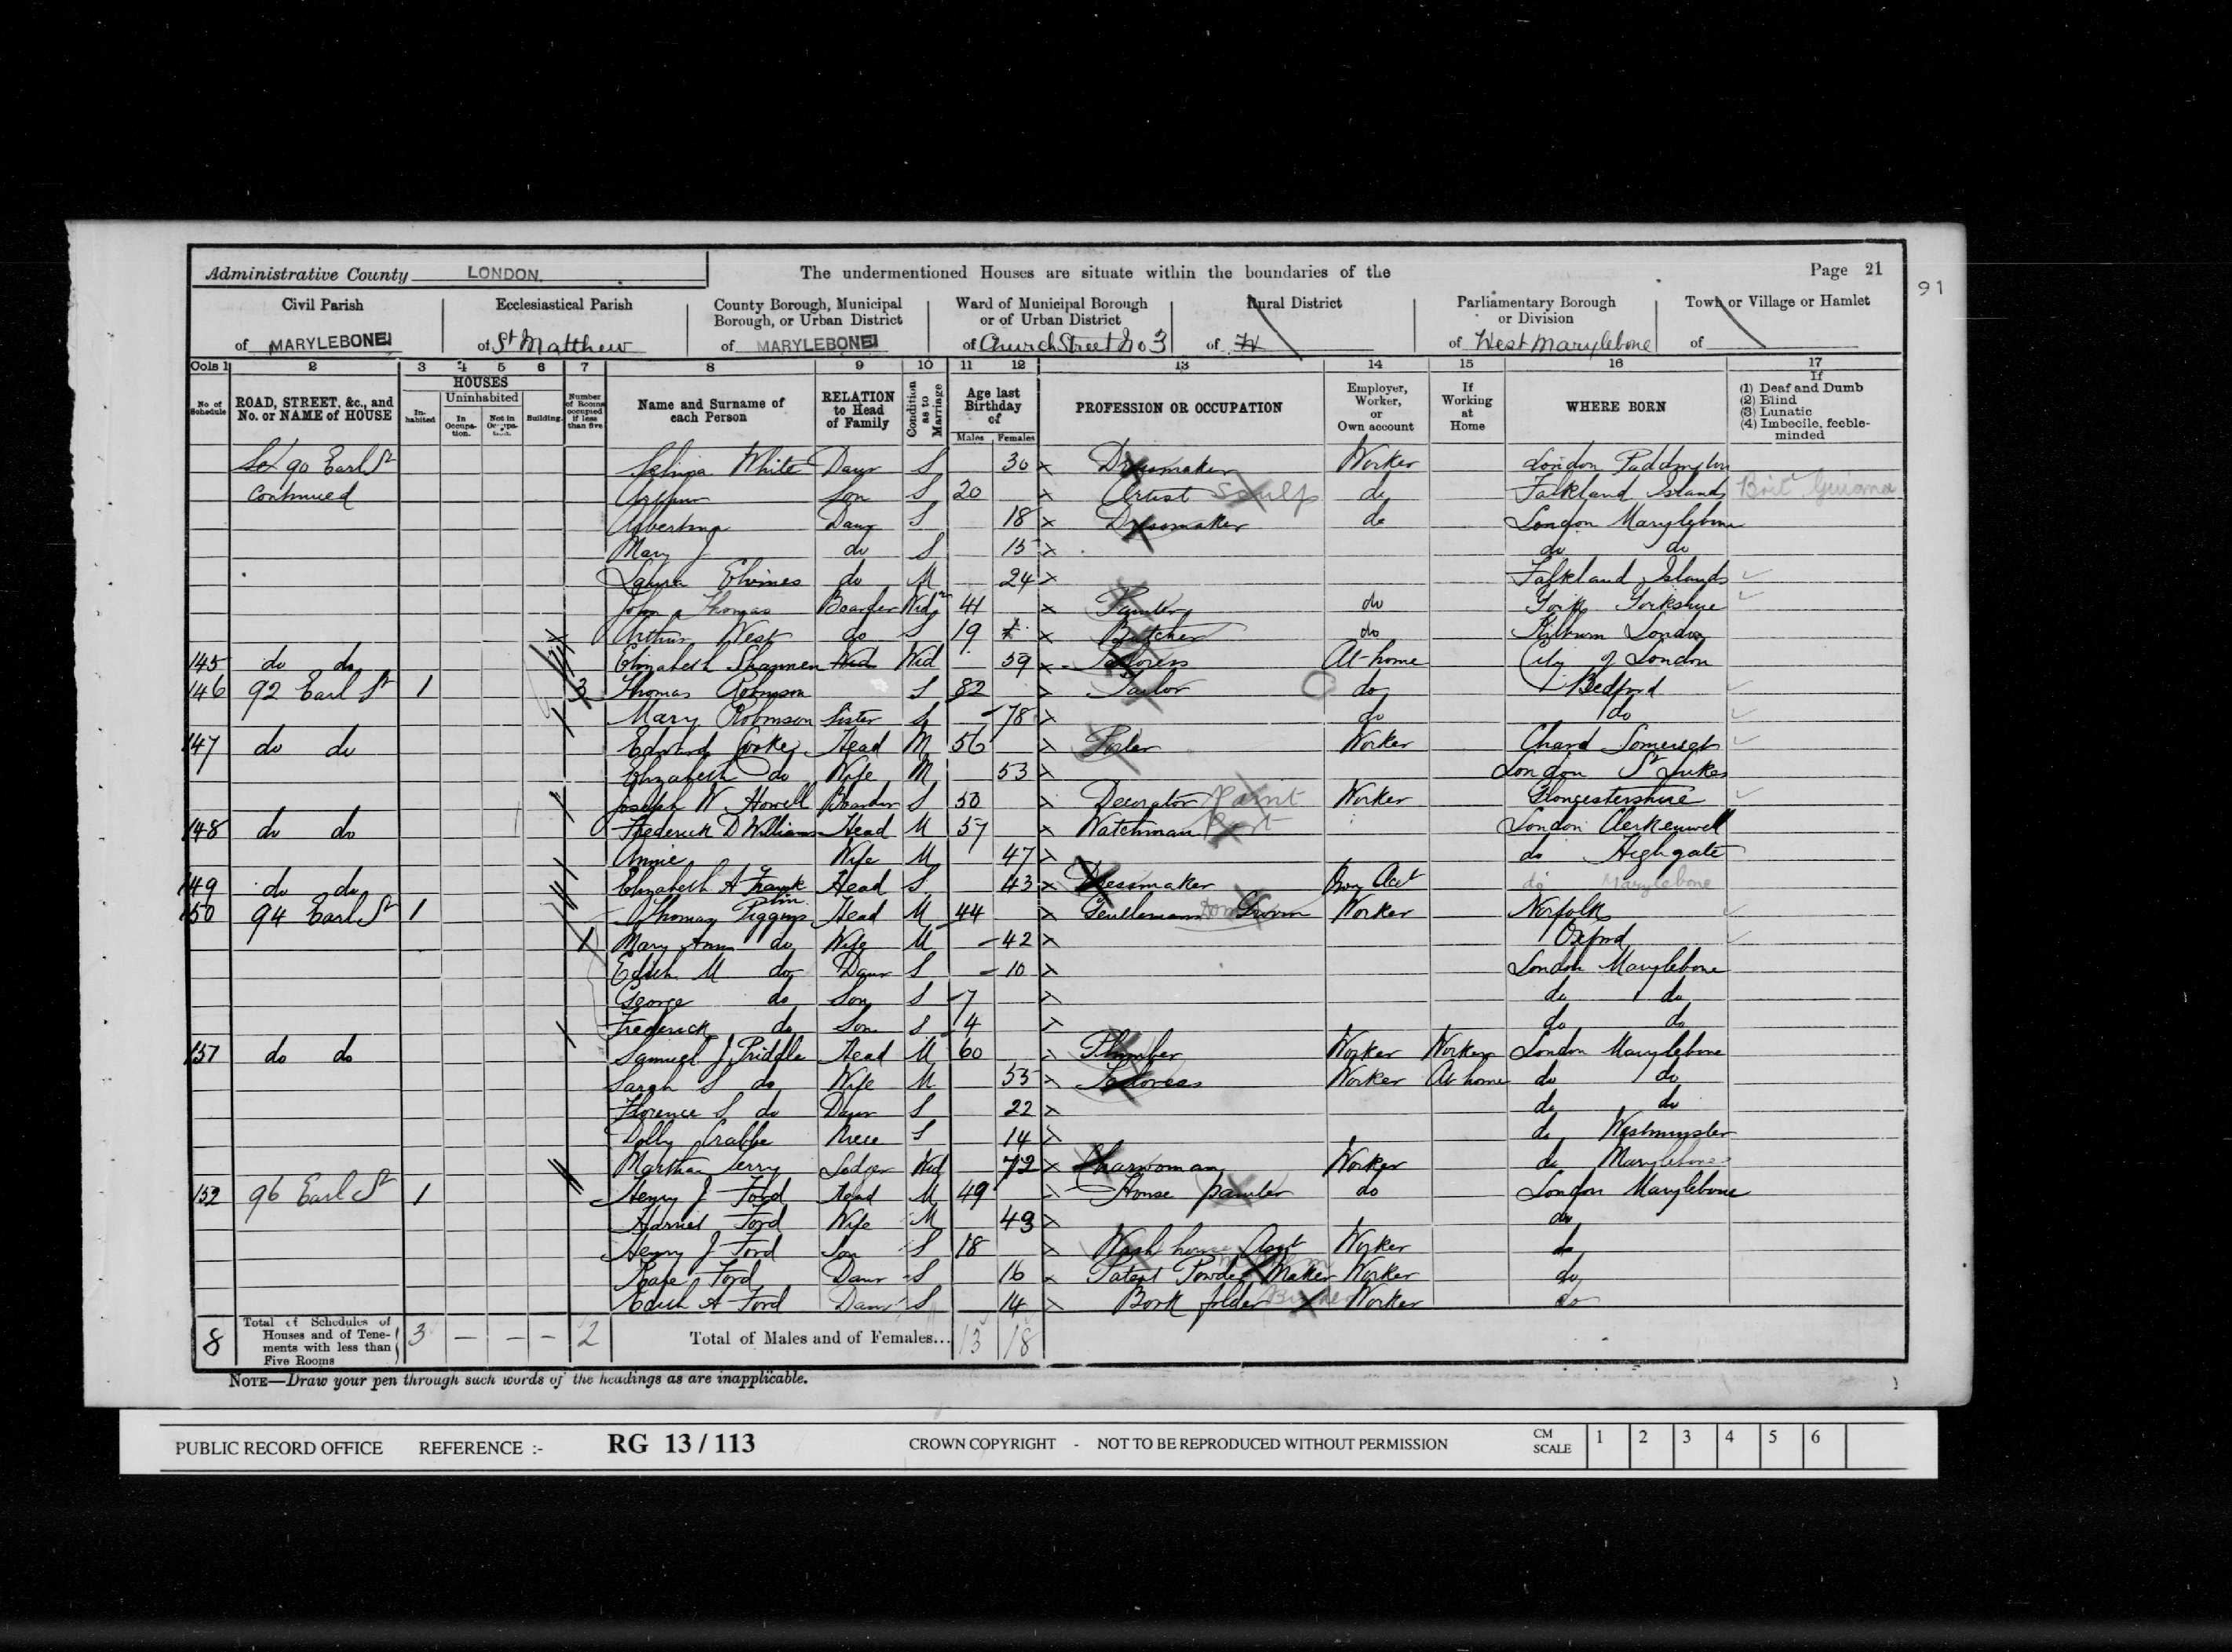 Administrative County LONDON.
The undermentioned Houses are situate within the boundaries of the
Page 21
91
Civil Parish of MARYLEBONE
Ecclesiastical Parish of St Matthew
County Borough, Municipal Borough, or Urban District of MARYLEBONE
Ward of Municipal Borough or of Urban District of Church Street No 3
Rural District of
Parliamentary Borough or Division of West Marylebone
Town or Village or Hamlet of
Cols 1 2 3 4 5 6 7 8 9 10 11 12 13 14 15 16 17
No. of Schedule
ROAD, STREET, &c., and No. or NAME of HOUSE
HOUSES
Inhabited
Uninhabited
In Occupation.
Not in Occupation.
Building
Number of Rooms occupied if less than five
Name and Surname of each Person
RELATION to Head of Family
Condition as to Marriage
Age last Birthday of
Males Females
PROFESSION OR OCCUPATION
Employer, Worker, or Own account
If Working at Home
WHERE BORN
If
(1) Deaf and Dumb
(2) Blind
(3) Lunatic
(4) Imbecile, feeble-minded
90 Earl St Selina White Daur S 30 x Dressmaker Worker London Paddington
Continued Arthur Son S 20 x Artist Sculp do Falkland Islands Brit Guiana
Albertina Daur S 18 x Dressmaker do London Marylebone
Mary J do S 15 x do do
Laura do M 24 x Falkland Islands
John Thomas Boarder Widr 41 x Painter do York Yorkshire
Arthur West do S 19 x Butcher do Kilburn London
145 do do Elizabeth Wid Wid 59 x Tailoress At home City of London
146 92 Earl St 1 3 Thomas Robinson S 82 Tailor do Bedford
Mary Robinson Sister S 78 x do do
147 do do Edward Cooke Head M 56 Porter Worker Chard Somerset
Elizabeth do Wife M 53 London St Lukes
Joseph W Howell Boarder S 50 Decorator Paint Worker Gloucestershire
148 do do Frederick D Williams Head M 57 x Watchman London Clerkenwell
Annie Wife M 47 do Highgate
149 do do Elizabeth A Head S 43 x Dressmaker Own Acct do Marylebone
150 94 Earl St 1 Thomas Piggins Head M 44 x Gentlemans Dom Groom Worker Norfolk
1 Mary Ann do Wife M 42 x Oxford
Edith M do Daur S 10 x London Marylebone
George do Son S 7 do do
Frederick do Son S 4 do do
151 do do Samuel J Priddle Head M 60 Plumber Worker Worker London Marylebone
Sarah S do Wife M 55 Tailoress Worker At home do do
Florence S do Daur S 22 x do do
Dolly Crabbe Niece S 14 do Westminster
Martha Lodger Wid 72 x Charwoman Worker do Marylebone
152 96 Earl St 1 Henry J Ford Head M 49 House painter do London Marylebone
Harriet Ford Wife M 49 do
Henry J Ford Son S 18 Wash house Asst Worker do
Ford Daur S 16 x Patent Powder Maker Worker do
Edith A Ford Daur S 14 Book folder Worker do
8 Total of Schedules of Houses and of Tenements with less than Five Rooms 3 — — — 2 Total of Males and of Females... 13 18
NOTE—Draw your pen through such words of the headings as are inapplicable.
PUBLIC RECORD OFFICE REFERENCE :- RG 13 / 113 CROWN COPYRIGHT - NOT TO BE REPRODUCED WITHOUT PERMISSION CM SCALE 1 2 3 4 5 6